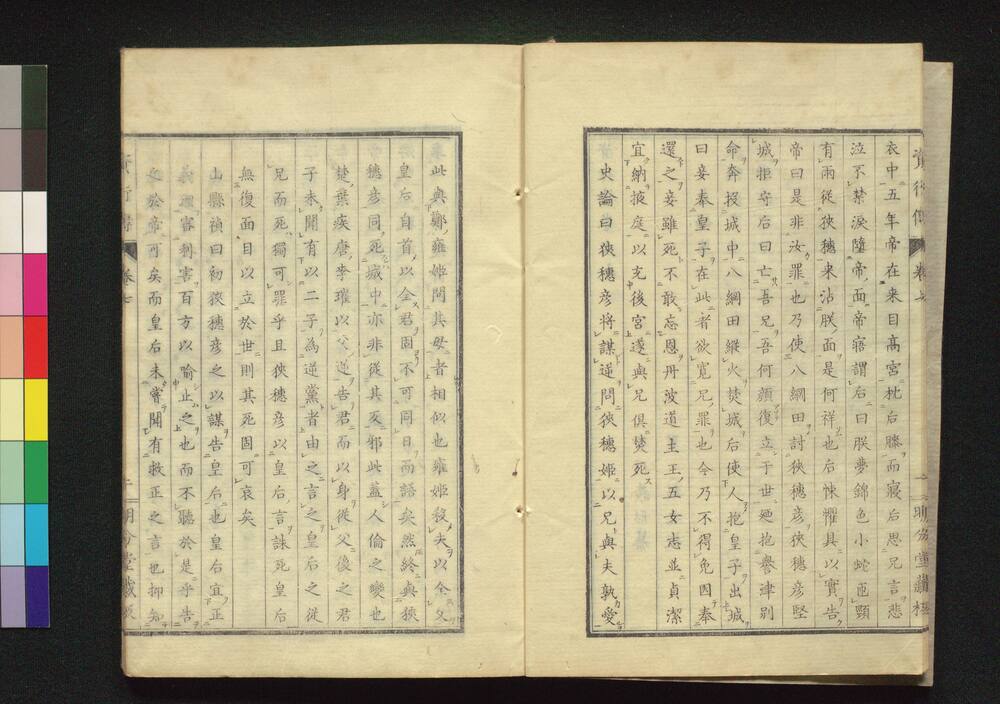 衣中五年帝在来目高宮枕后膝而寢后思兄言悲
泣不禁淚隨帝面帝寤謂后曰朕夢錦色小蛇匝頸
有雨從狹穗来沾朕面是何祥也后悚懼具以實告
帝曰是非汝罪也乃使八綱田討狹穗彦狹穗彦堅
城拒守后曰亡吾兄吾何顔復立于世廼抱譽津別
命奔投城中八綱田縱火焚城后使人抱皇子出城
曰妾奉皇子在此者欲寬兄罪也今乃不得免因奉
還之妾雖死不敢忘恩丹波道主王五女志並貞潔
宜納掖庭以充後宮遂與兄俱焚死
史論曰狹穗彦將謀逆問狹穗姫以兄與夫孰愛
此與鄭雍姫問其母者相似也雍姫殺夫以全父
皇后自首以全君固不可同日而語矣然終與狹
穗彦同死城中亦非從其夊邪此蓋人倫之變也
楚葉疾唐李璀以父逆告君而以身從父後之君
子未聞有以二子為逆黨者由之言之皇后之從
兄而死獨可罪乎且狹穗彦以皇后言誅死皇后
無復面目以立於世則其死固可哀矣
山縣禎曰初狹穗彦之以謀告皇后也皇后宜正
義理審利害百方以喻止之也而不聽於是乎告
之於帝可矣而皇后未嘗聞有救正之言也抑知
卷七
二
明分堂蔵